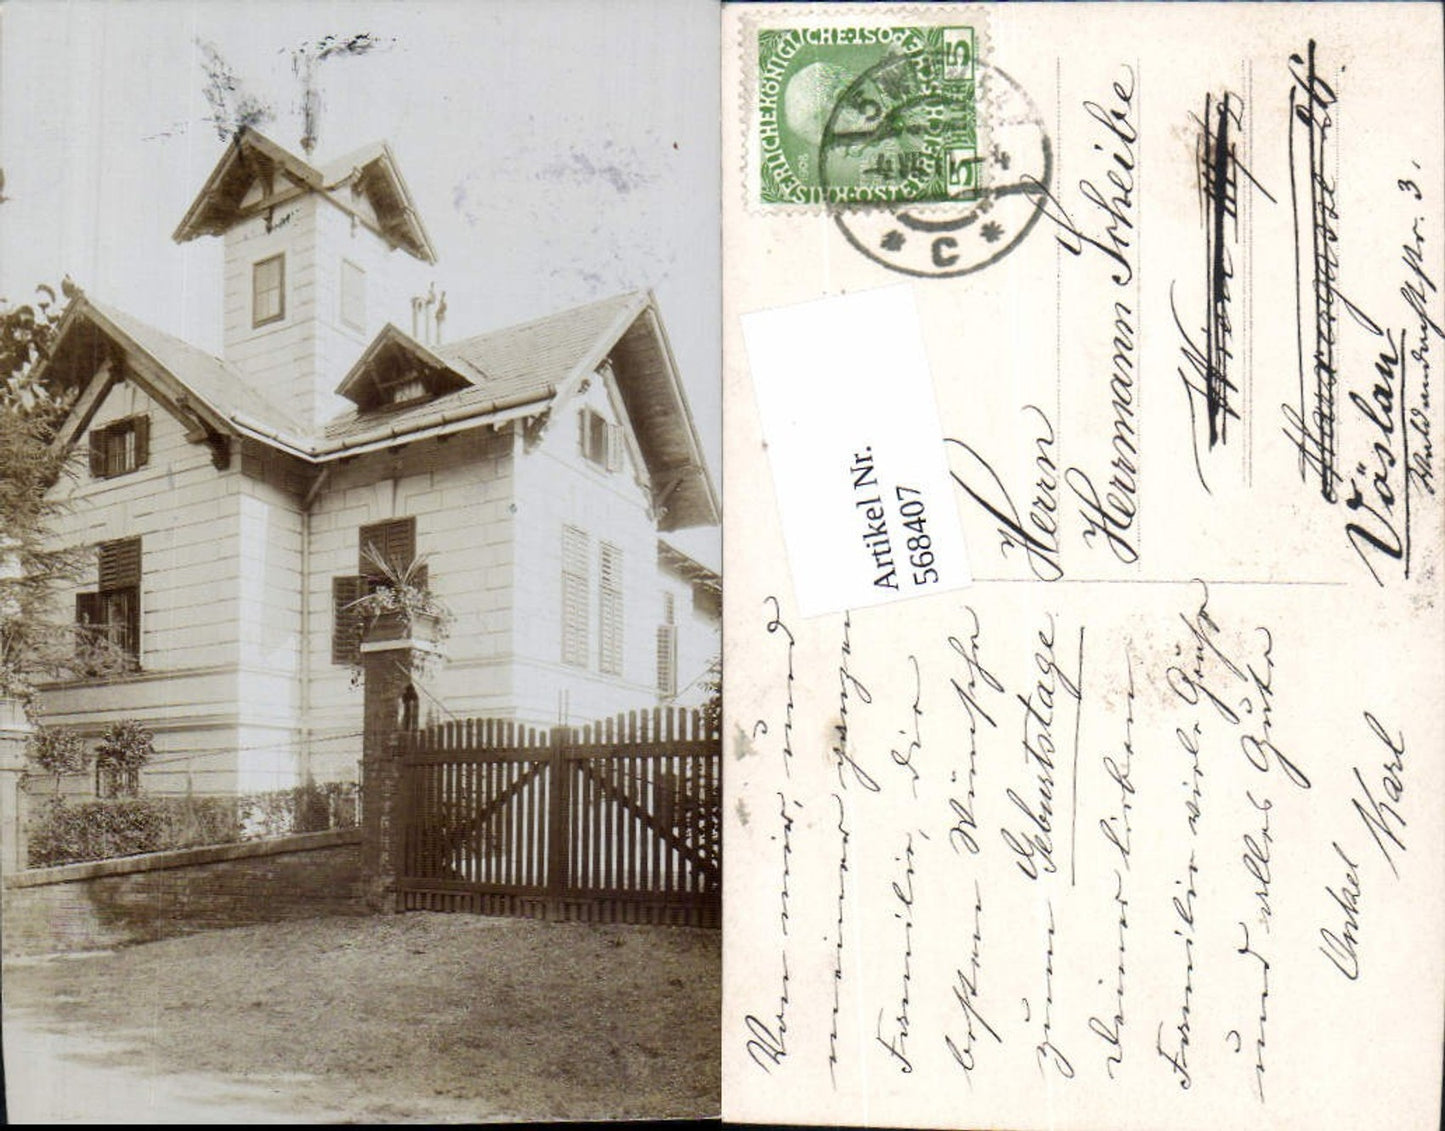 KAISERLICHE KÖNIGLICHE ÖSTERREICHISCHE POST
5 HELLER 5
5
4 VII 14
* C *
Artikel Nr.
568407
Herrn
Herrmann Scheibe
Wien
Vöslau
3.
Von mir, und
meiner ganzen
Familie, die
besten Wünsche
zum Geburtstage
Deiner lieben
Familie viele Grüße
und alles Gute
Onkel
Karl